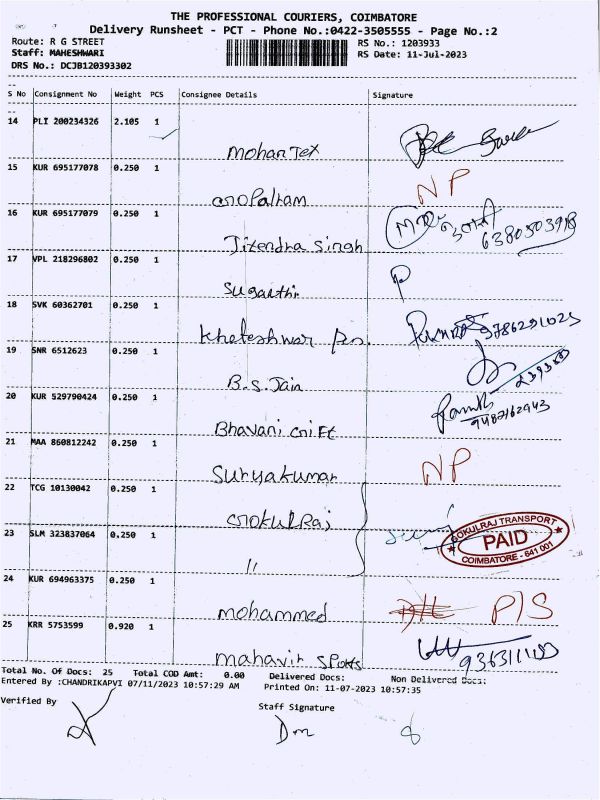 THE PROFESSIONAL COURIERS, COIMBATORE
Delivery Runsheet - PCT - Phone No.:0422-3505555 - Page No.:2
Route: R G STREET RS No.: 1203933
Staff: MAHESHWARI RS Date: 11-Jul-2023
DRS No.: DCJB120393302
S No Consignment No Weight PCS Consignee Details Signature
14 PLI 200234326 2.105 1
Mohan Tex
15 KUR 695177078 0.250 1
Gopalram NP
16 KUR 695177079 0.250 1
Jitendra Singh 6380503918
17 VPL 218296802 0.250 1
Suganthi P
18 SVK 60362701 0.250 1
Kheteshwar 9786291025
19 SNR 6512623 0.250 1
B.S. Jain
20 KUR 529790424 0.250 1
Bhavani Gift 9487162943
21 MAA 860812242 0.250 1
Suryakumar NP
22 TCG 10130042 0.250 1
Gokulraj
GOKULRAJ TRANSPORT
PAID
COIMBATORE - 641 001
23 SLM 323837064 0.250 1
11
24 KUR 694963375 0.250 1
Mohammed P/S
25 KRR 5753599 0.920 1
Mahavir Sports
Total No. Of Docs: 25 Total COD Amt: 0.00 Delivered Docs: Non Delivered Docs:
Entered By :CHANDRIKAPVI 07/11/2023 10:57:29 AM Printed On: 11-07-2023 10:57:35
Verified By Staff Signature